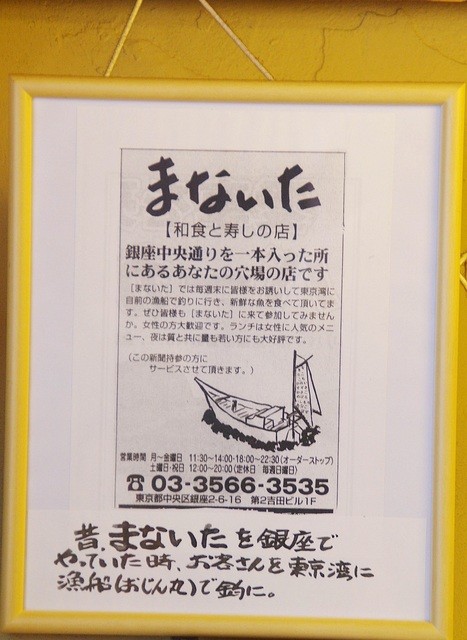 まないた
【和食と寿しの店】
銀座中央通りを一本入った所
にあるあなたの穴場の店です
[まないた]では毎週末に皆様をお誘いして東京湾に
自前の漁船で釣りに行き、新鮮な魚を食べて頂いてま
す。ぜひ皆様も[まないた]に来て参加してみません
か。女性の方大歓迎です。ランチは女性に人気のメニ
ュー、夜は質と共に量も若い方にも大好評です。
(この新聞持参の方に
サービスさせて頂きます。)
営業時間 月〜金曜日 11:30〜14:00・18:00〜22:30(オーダーストップ)
土曜日・祝日 12:00〜20:00(定休日 毎週日曜日)
☎03-3566-3535
東京都中央区銀座2-6-16 第2吉田ビル1F
昔、まないたを銀座で
やっていた時、お客さんを東京湾に
漁船(おじん丸)で釣に。